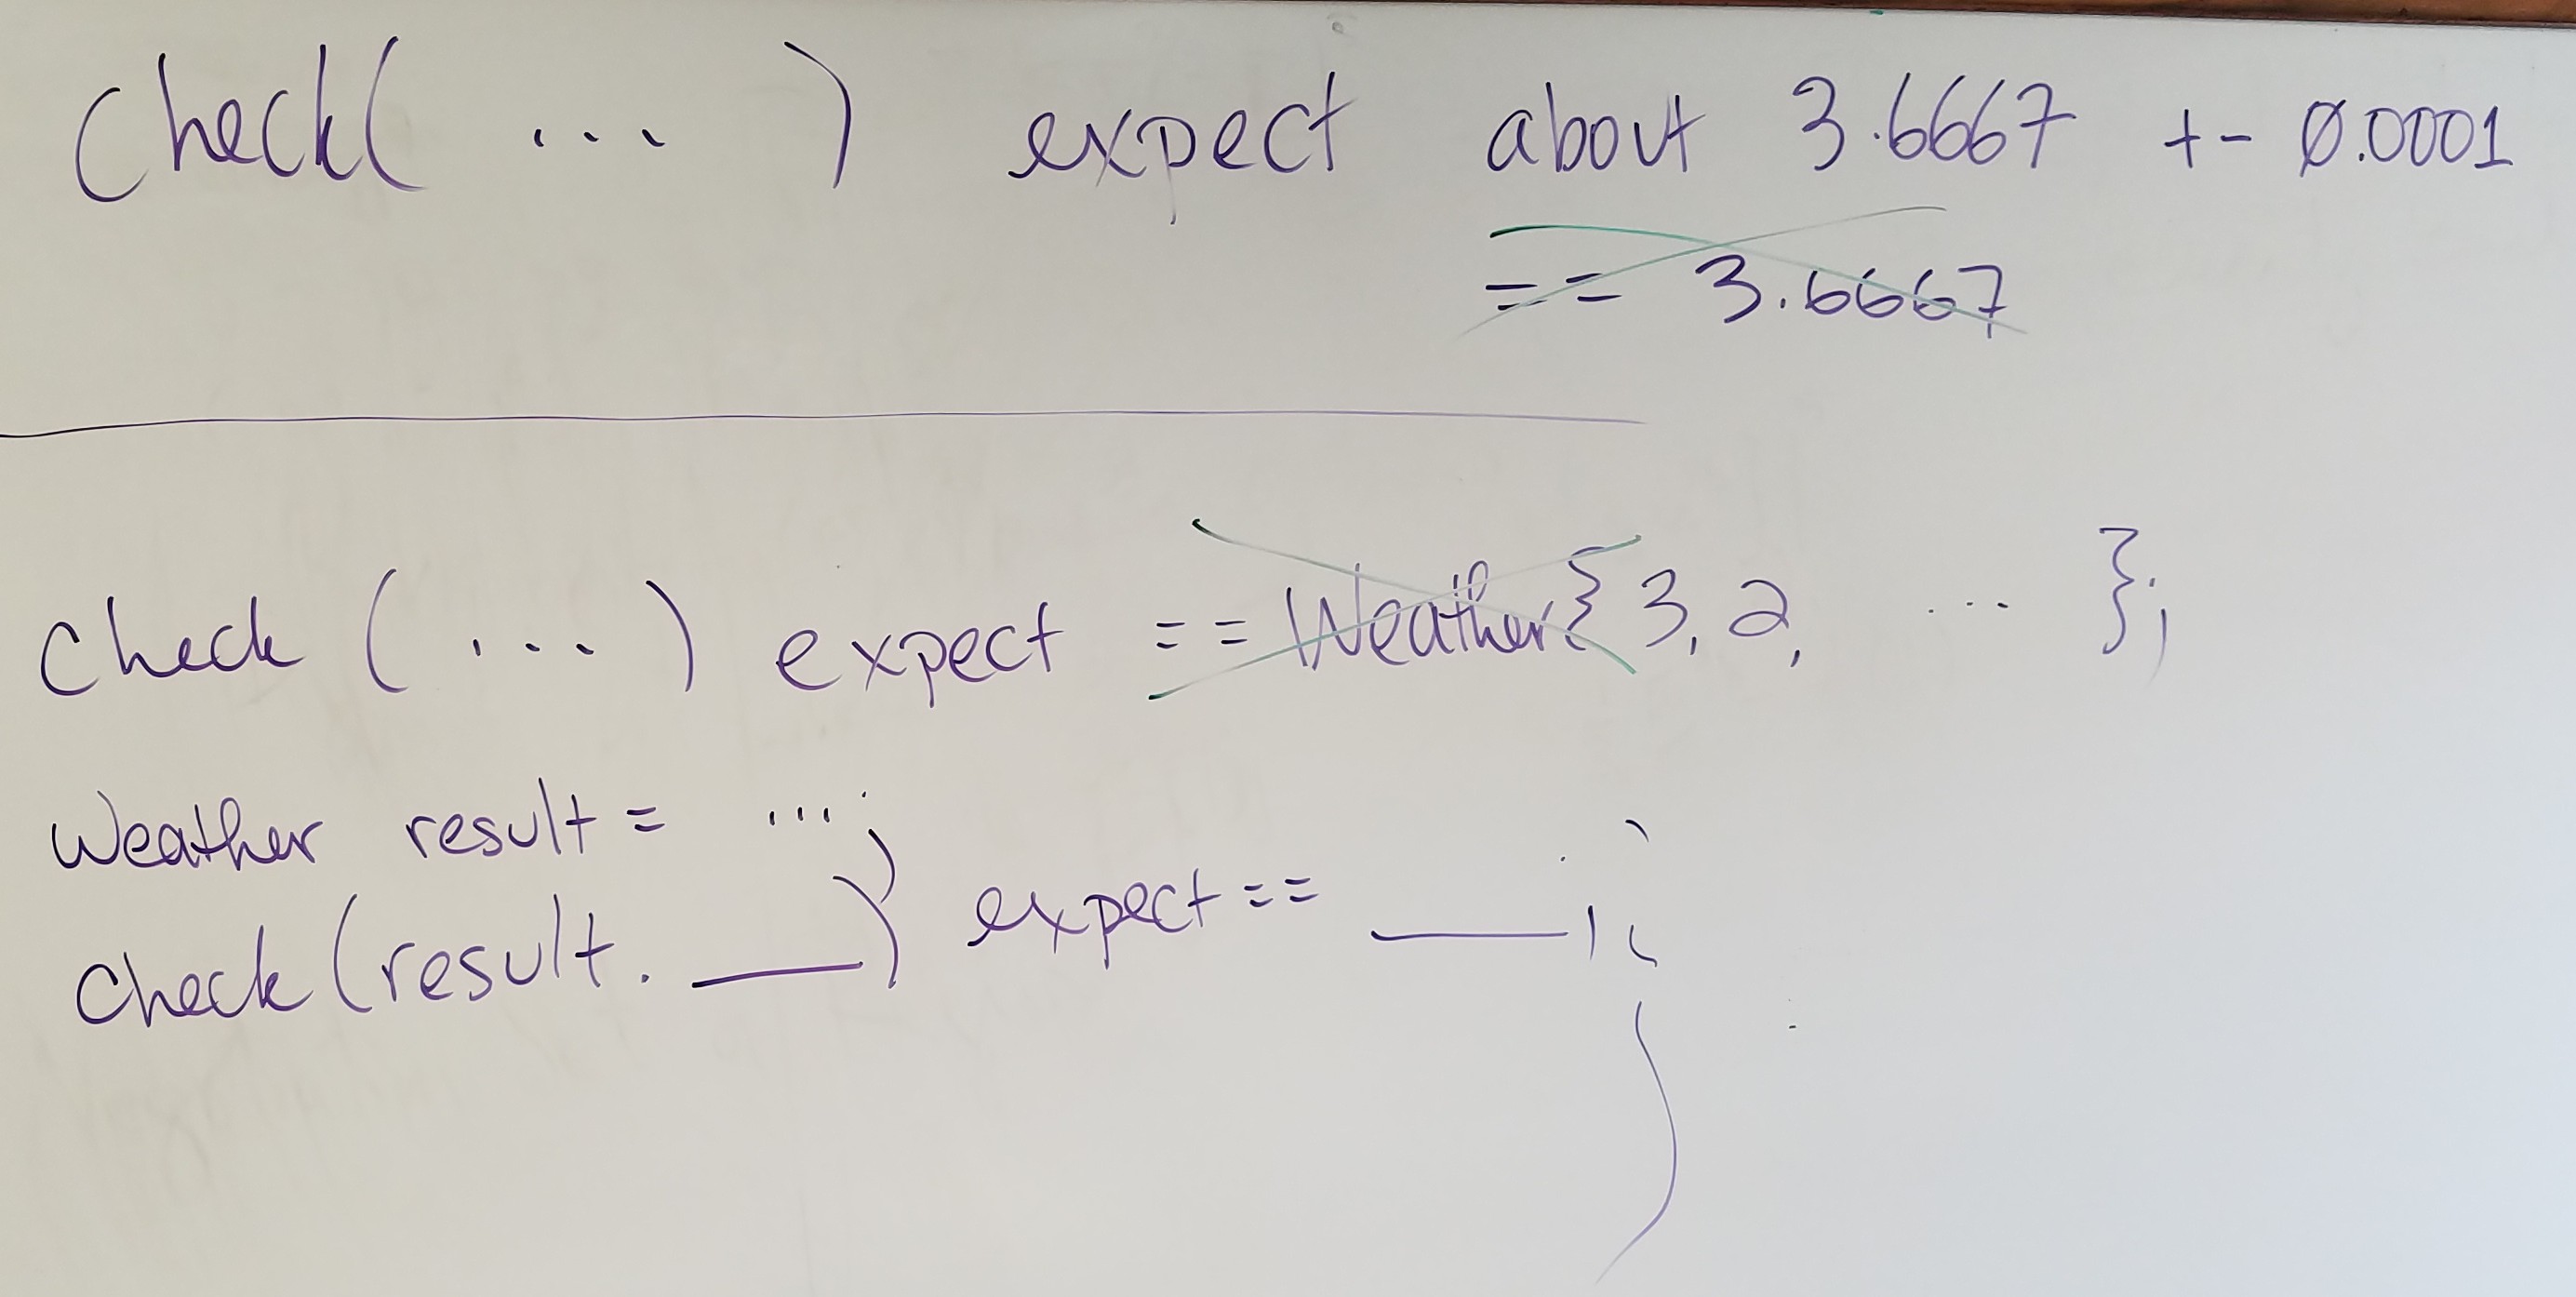 check( ... ) expect about 3.6667 +- 0.0001
== 3.6667
check ( ... ) expect == Weather{ 3, 2, ... };
Weather result = ...;
check (result. ___) expect == ___;